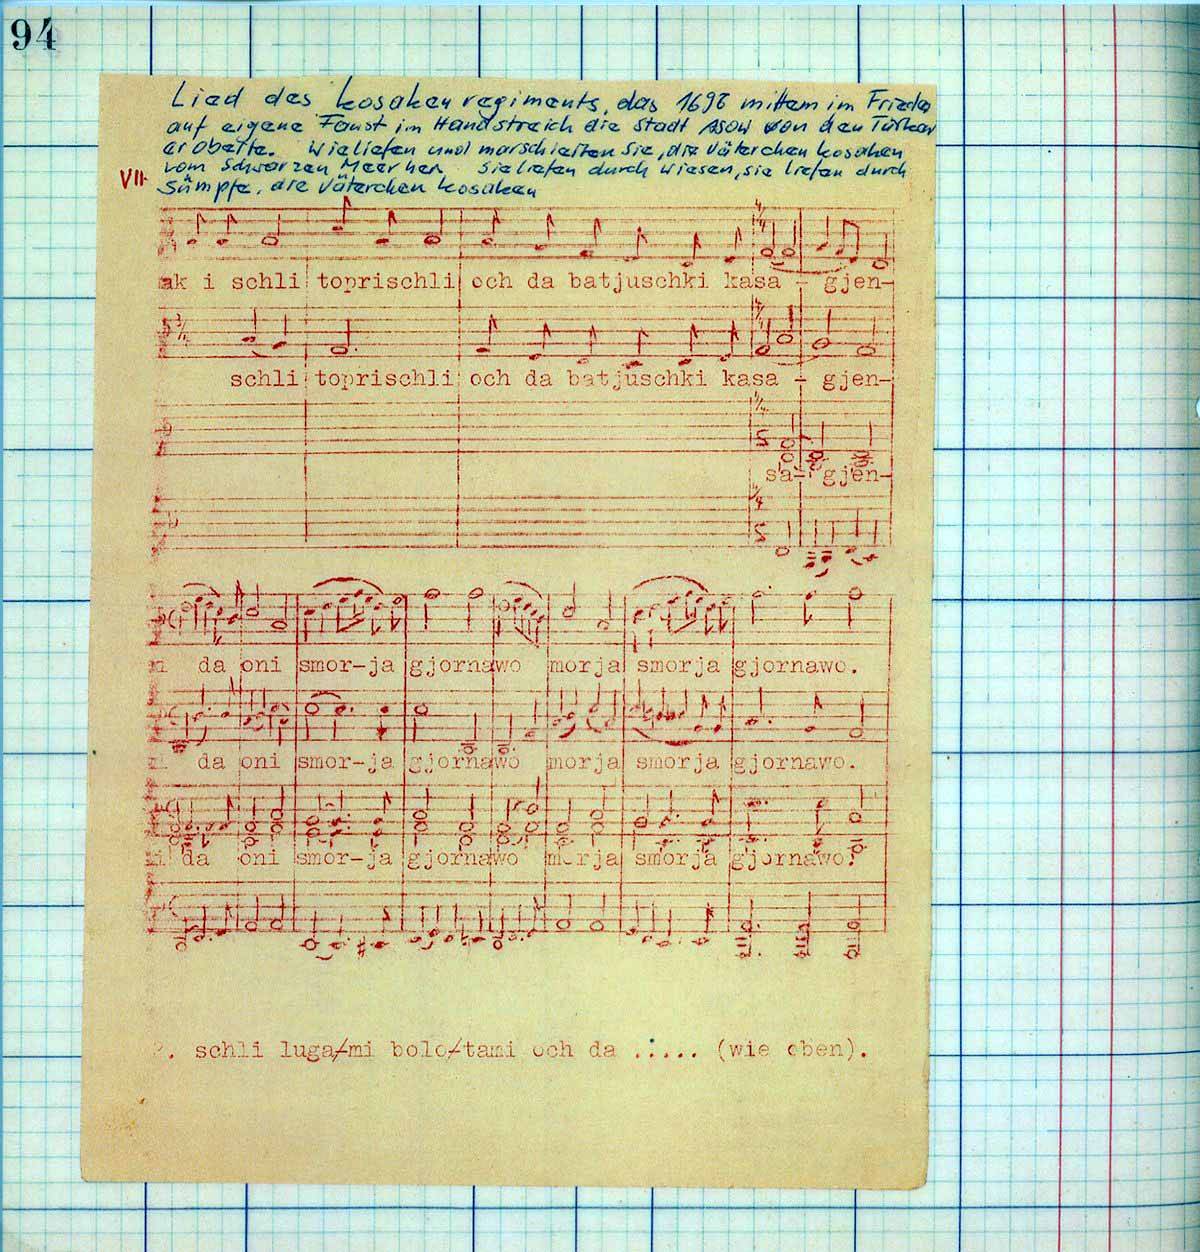 94
Lied des Kosakenregiments, das 1696 mitten im Frieden
auf eigene Faust im Handstreich die Stadt Asow von den Türken
eroberte. Wie liefen und marschierten sie, die Väterchen Kosaken
vom Schwarzen Meer her. Sie liefen durch Wiesen, sie liefen durch
VII.
Sümpfe, die Väterchen Kosaken
ak i schli toprischli och da batjuschki kasa - gjen-
schli toprischli och da batjuschki kasa - gjen-
sa- gjen-
da oni smor-ja gjornawo morja smorja gjornawo.
da oni smor-ja gjornawo morja smorja gjornawo.
i da oni smor-ja gjornawo morja smorja gjornawo.
2. schli luga/mi bolo/tami och da ..... (wie oben).